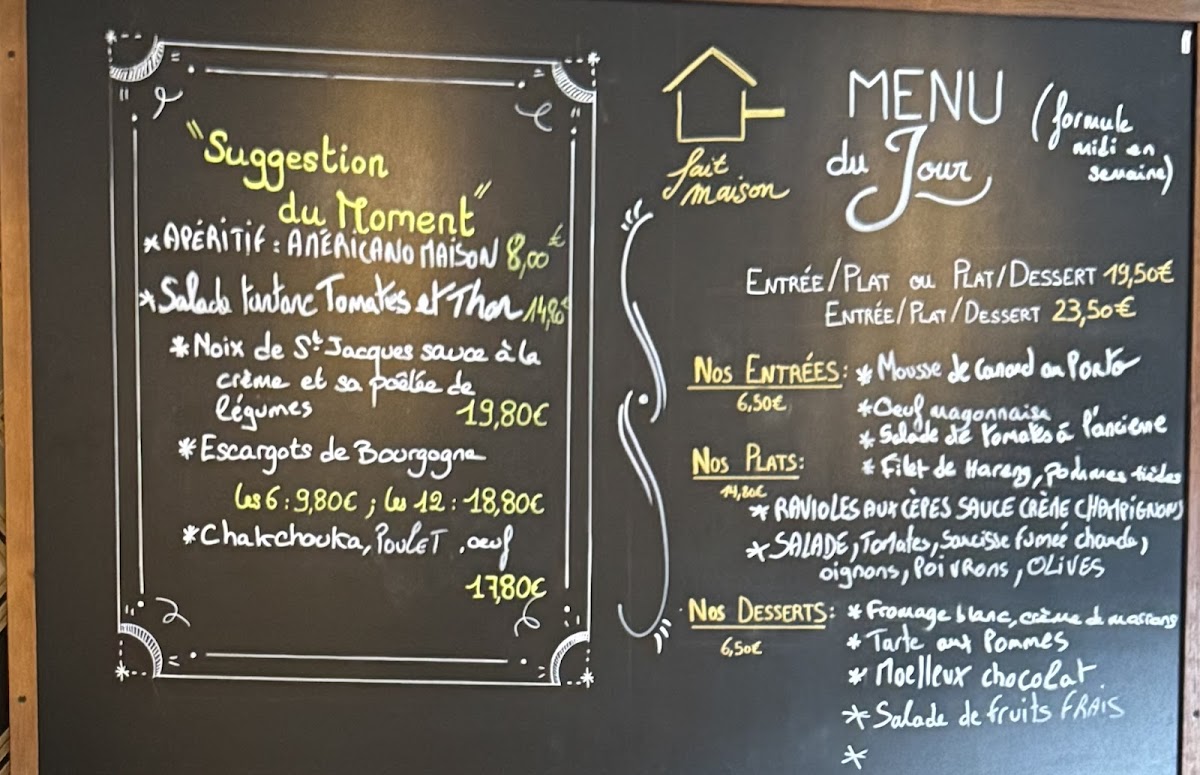 "Suggestion
du Moment"
* APÉRITIF : AMÉRICANO MAISON 8,00€
* Salade tartare Tomates et Thon 14,80€
* Noix de St Jacques sauce à la
crème et sa poêlée de
légumes 19,80€
* Escargots de Bourgogne
les 6 : 9,80€ ; les 12 : 18,80€
* Chakchouka, POULET, oeuf
17,80€
fait
maison
MENU
du Jour
(formule
midi en
semaine)
ENTRÉE/PLAT OU PLAT/DESSERT 19,50€
ENTRÉE/PLAT/DESSERT 23,50€
NOS ENTRÉES : * Mousse de Canard au Porto
6,50€
* Oeuf mayonnaise
* Salade de tomates à l'ancienne
* Filet de Hareng, pommes tièdes
NOS PLATS :
14,80€
* RAVIOLES AUX CÈPES SAUCE CRÈME CHAMPIGNONS
* SALADE, Tomates, Saucisse fumée chaude,
oignons, POIVRONS, OLIVES
NOS DESSERTS : * Fromage blanc, crème de marrons
6,50€
* Tarte aux Pommes
* Moelleux chocolat
* Salade de fruits FRAIS
*